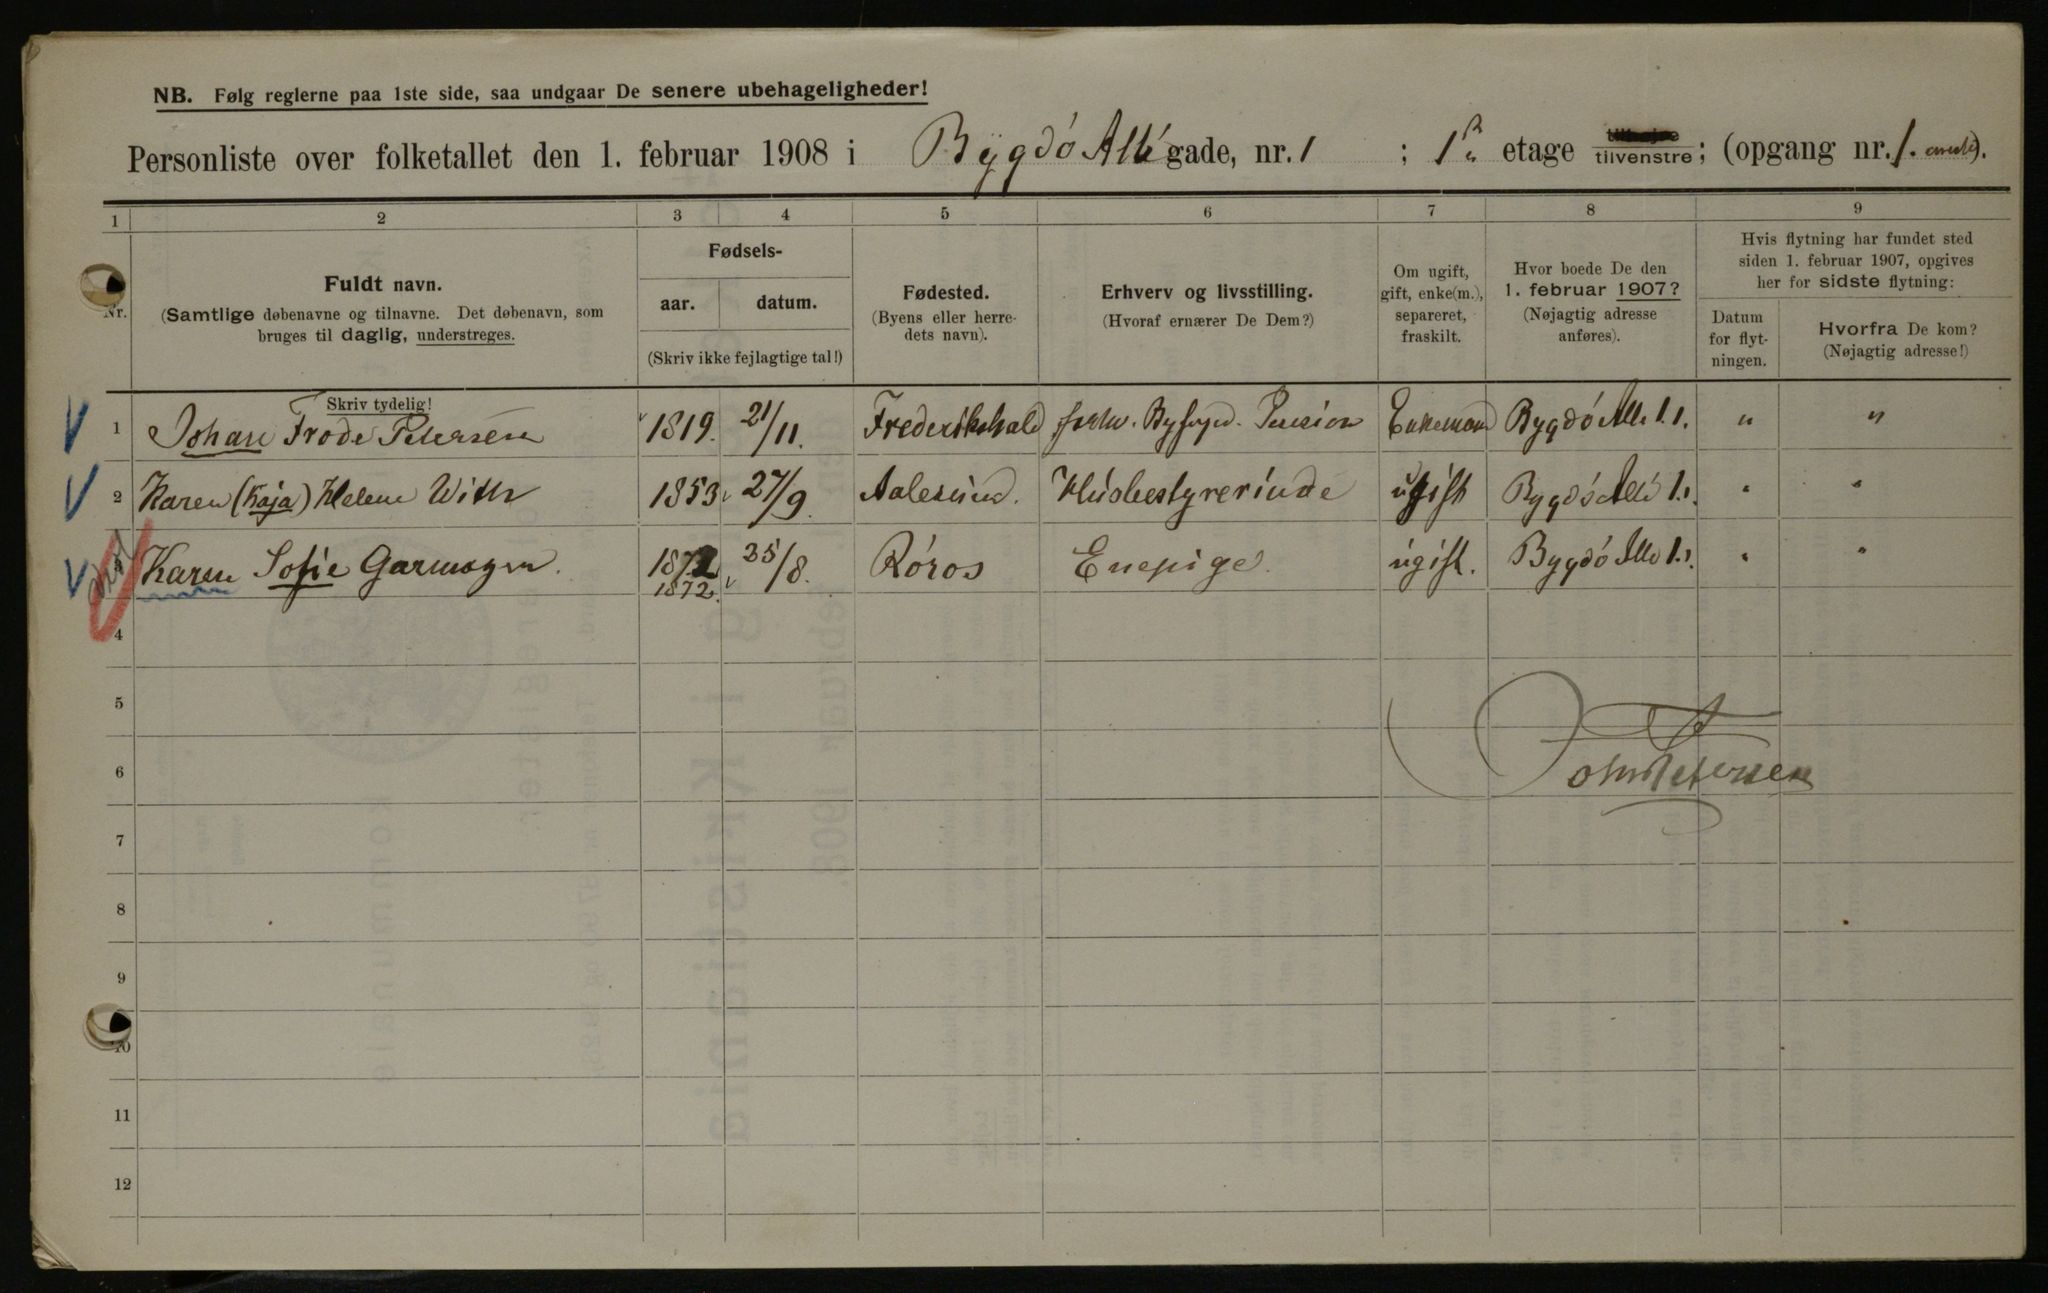 NB. Følg reglerne paa 1ste side, saa undgaar De senere ubehageligheder!
Personliste over folketallet den 1. februar 1908 i Bygdö Allé gade, nr. 1 ; 1ste etage tilvenstre; (opgang nr. 1.).
1 2 3 4 5 6 7 8 9
Nr.
Fuldt navn.
(Samtlige døbenavne og tilnavne. Det døbenavn, som
bruges til daglig, understreges.
Skriv tydelig!
Fødsels-
aar. datum.
(Skriv ikke fejlagtige tal!)
Fødested.
(Byens eller herre-
dets navn).
Erhverv og livsstilling.
(Hvoraf ernærer De Dem?)
Om ugift,
gift, enke(m.),
separeret,
fraskilt.
Hvor boede De den
1. februar 1907?
(Nøjagtig adresse
anføres).
Hvis flytning har fundet sted
siden 1. februar 1907, opgives
her for sidste flytning:
Datum
for flyt-
ningen.
Hvorfra De kom?
(Nøjagtig adresse!)
1 Johan Frode Petersen 1819. 21/11. Frederikshald forhv. Byfogd. Pension Enkemand Bygdö Allé 1.1. " "
2 Karen (Kaja) Helene With 1853 27/9. Aalesund. Husbestyrerinde ugift Bygdö Allé 1.1. " "
Karen Sofie Garmogen. 1872 25/8. Röros Enepige. ugift. Bygdö Allé 1.1. " "
1872.
4
5
6
Joh F Petersen
7
8
9
10
11
12